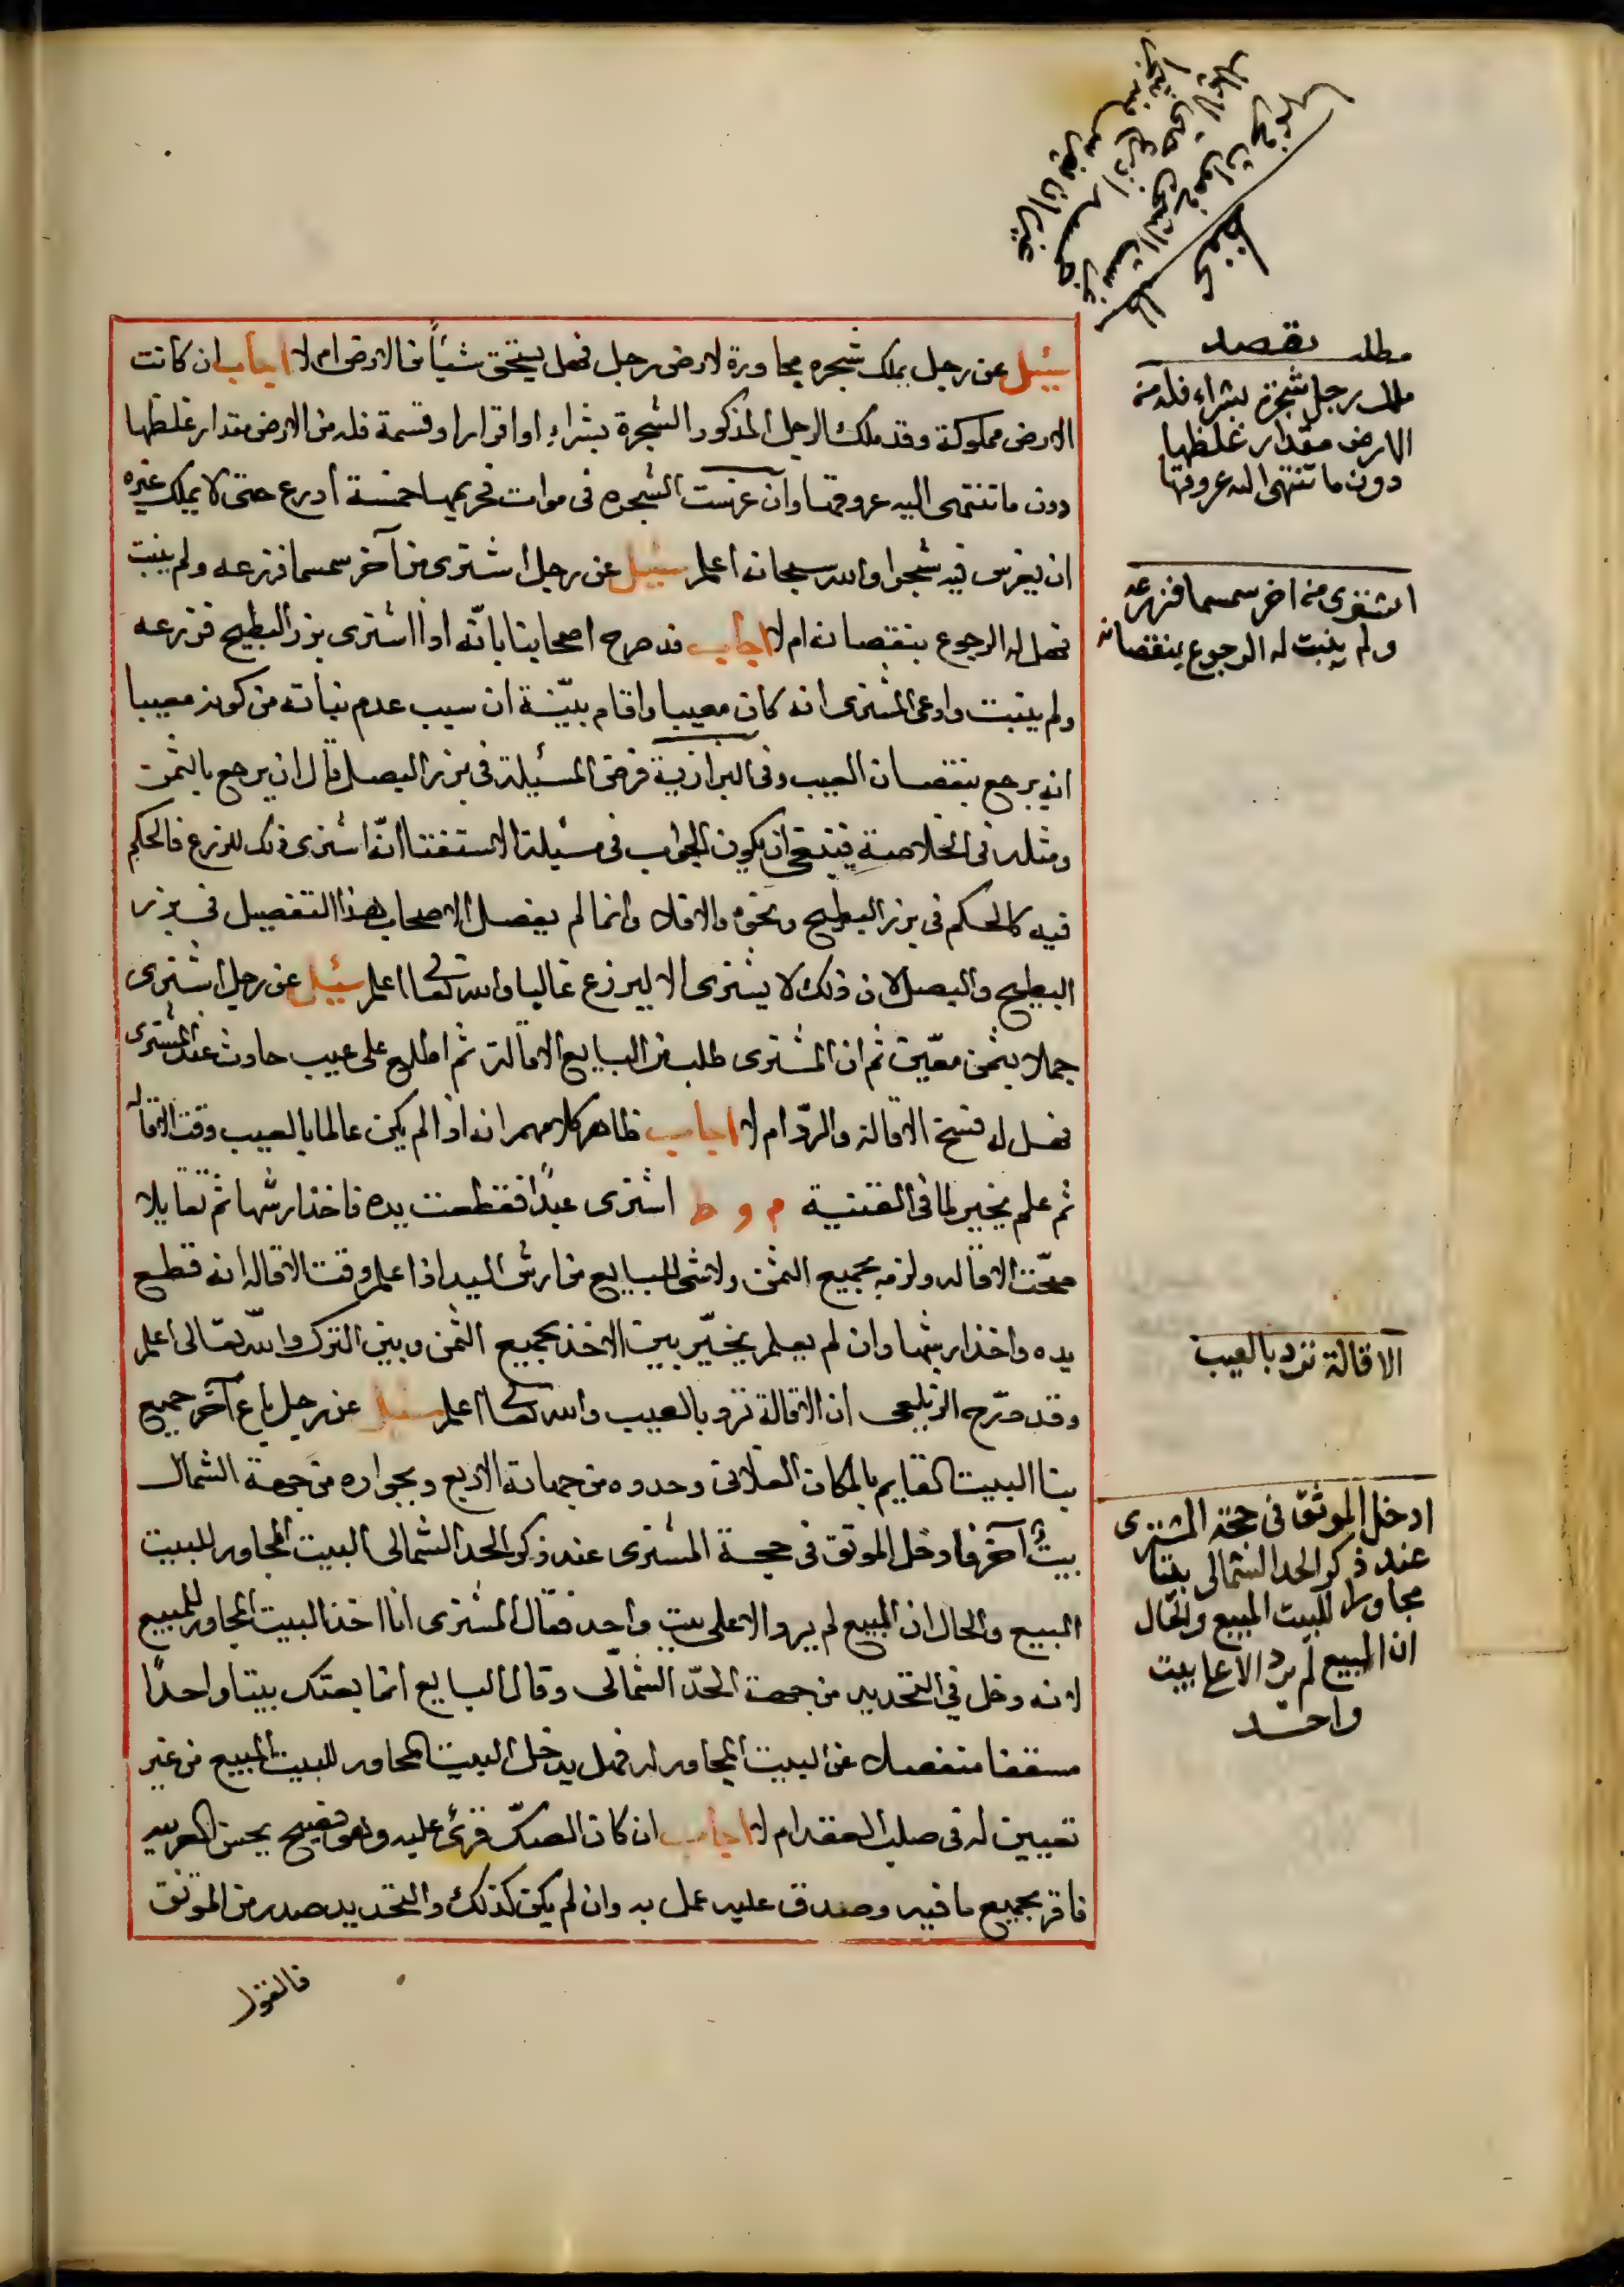 سئيل عن رجل يملك شجره مجاورة لارض رجل فهل يستحق شيأً من الارض ام لا اجاب ان كانت
الارض مملوكة وقد ملك الرجل المذكور الشجرة بشراء او اقرار او قسمة فله من الارض مقدار غلظها
دون ما تنتهى اليه عروقها وان غرست الشجره فى موات فحريمها خمسة ادرع حتى لا يملك غيره
ان يغرس فيه شجرا والله سبحانه اعلم سئيل عن رجل اشترى من آخر سمسما فزرعه ولم ينبت
فهل له الرجوع بنقصانه ام لا اجاب قد صرح اصحابنا بانّه اذا اشترى بزر البطيخ فزرعه
ولم ينبت وادعى المشترى انه كان معيبا واقام بيّنة ان سبب عدم نباته من كونه معيبا
انه يرجع بنقصان العيب وفى البزازية فرض المسئيلة فى بزر البصل قال ان يرجع بالثمن
ومثله فى الخلاصة فينبغى ان يكون الجواب فى مسيلة الاستفتا انّه اشترى ذلك للزرع فالحكم
فيه كالحكم فى بزر البطيخ ونحوه والافلا وانما لم يفصل الاصحاب هذا التفصيل فى بزر
البطيخ والبصل لان ذلك لا يشترى الا ليزرع غالبا والله تعا اعلم سئيل عن رجل اشترى
جملا بثمن معيّن ثم ان المشترى طلب من البايع الاقالة ثم اطلع على عيب حادث عند المشترى
فهل له فسخ الاقالة والردّ ام لا اجاب ظاهر كلامهم انه اذا لم يكن عالما بالعيب وقت الاقاله
ثم علم يخير لما فى القنية م و ط اشترى عبدًا فقطعت يده فاخذ ارشها ثم تقايلا
صحّت الاقاله ولزمه بجميع الثمن ولا شى للبايع من ارش اليد اذا علم وقت الاقاله انه قطع
يده واخذ ارشها وان لم يعلم يخيّر بين الاخذ بجميع الثمن وبين الترك والله تعالى اعلم
وقد صرّح الزيلعى ان الاقالة ترد بالعيب والله تعا اعلم سئيل عن رجل باع آخر جميع
بنا البيت القايم بالمكان الفلانى وحدوه من جهاته الاربع وبجواره من جهة الشمال
بيتٌ آخر فادخل الموثق فى حجة المشترى عند ذكر الحد الشمالى البيت المجاور للبيت
المبيع والحال ان المبيع لم يرد الا على بيت واحد فقال المشترى انا اخذ البيت المجاور للمبيع
لانه دخل في التحديد من جهة الحدّ الشمالى وقال البايع انما بعتك بيتا واحدًا
مسقفا منفصلا عن البيت المجاور له فهل يدخل البيت المجاور للبيت المبيع من غير
تعيين له فى صلب العقد ام لا اجاب ان كان الصكّ قرئ عليه وهو فصيح يحسن العربيه
فاقر بجميع ما فيه وصدق عليه عمل به وان لم يكن كذلك والتحديد صدر من الموثق
فالقول
مطلب
ملك رجل شجرة بشراء فله من
الارض مقدار غلظها
دون ما تنتهى اليه عروقها
اشترى من اخر سمسما فزرعه
ولم ينبت له الرجوع بنقصانه
الاقالة ترد بالعيب
ادخل الموثق فى حجة المشترى
عند ذكر الحد الشمالى بيتا
مجاورا للبيت المبيع والحال
ان المبيع لم يرد الا على بيت
واحد